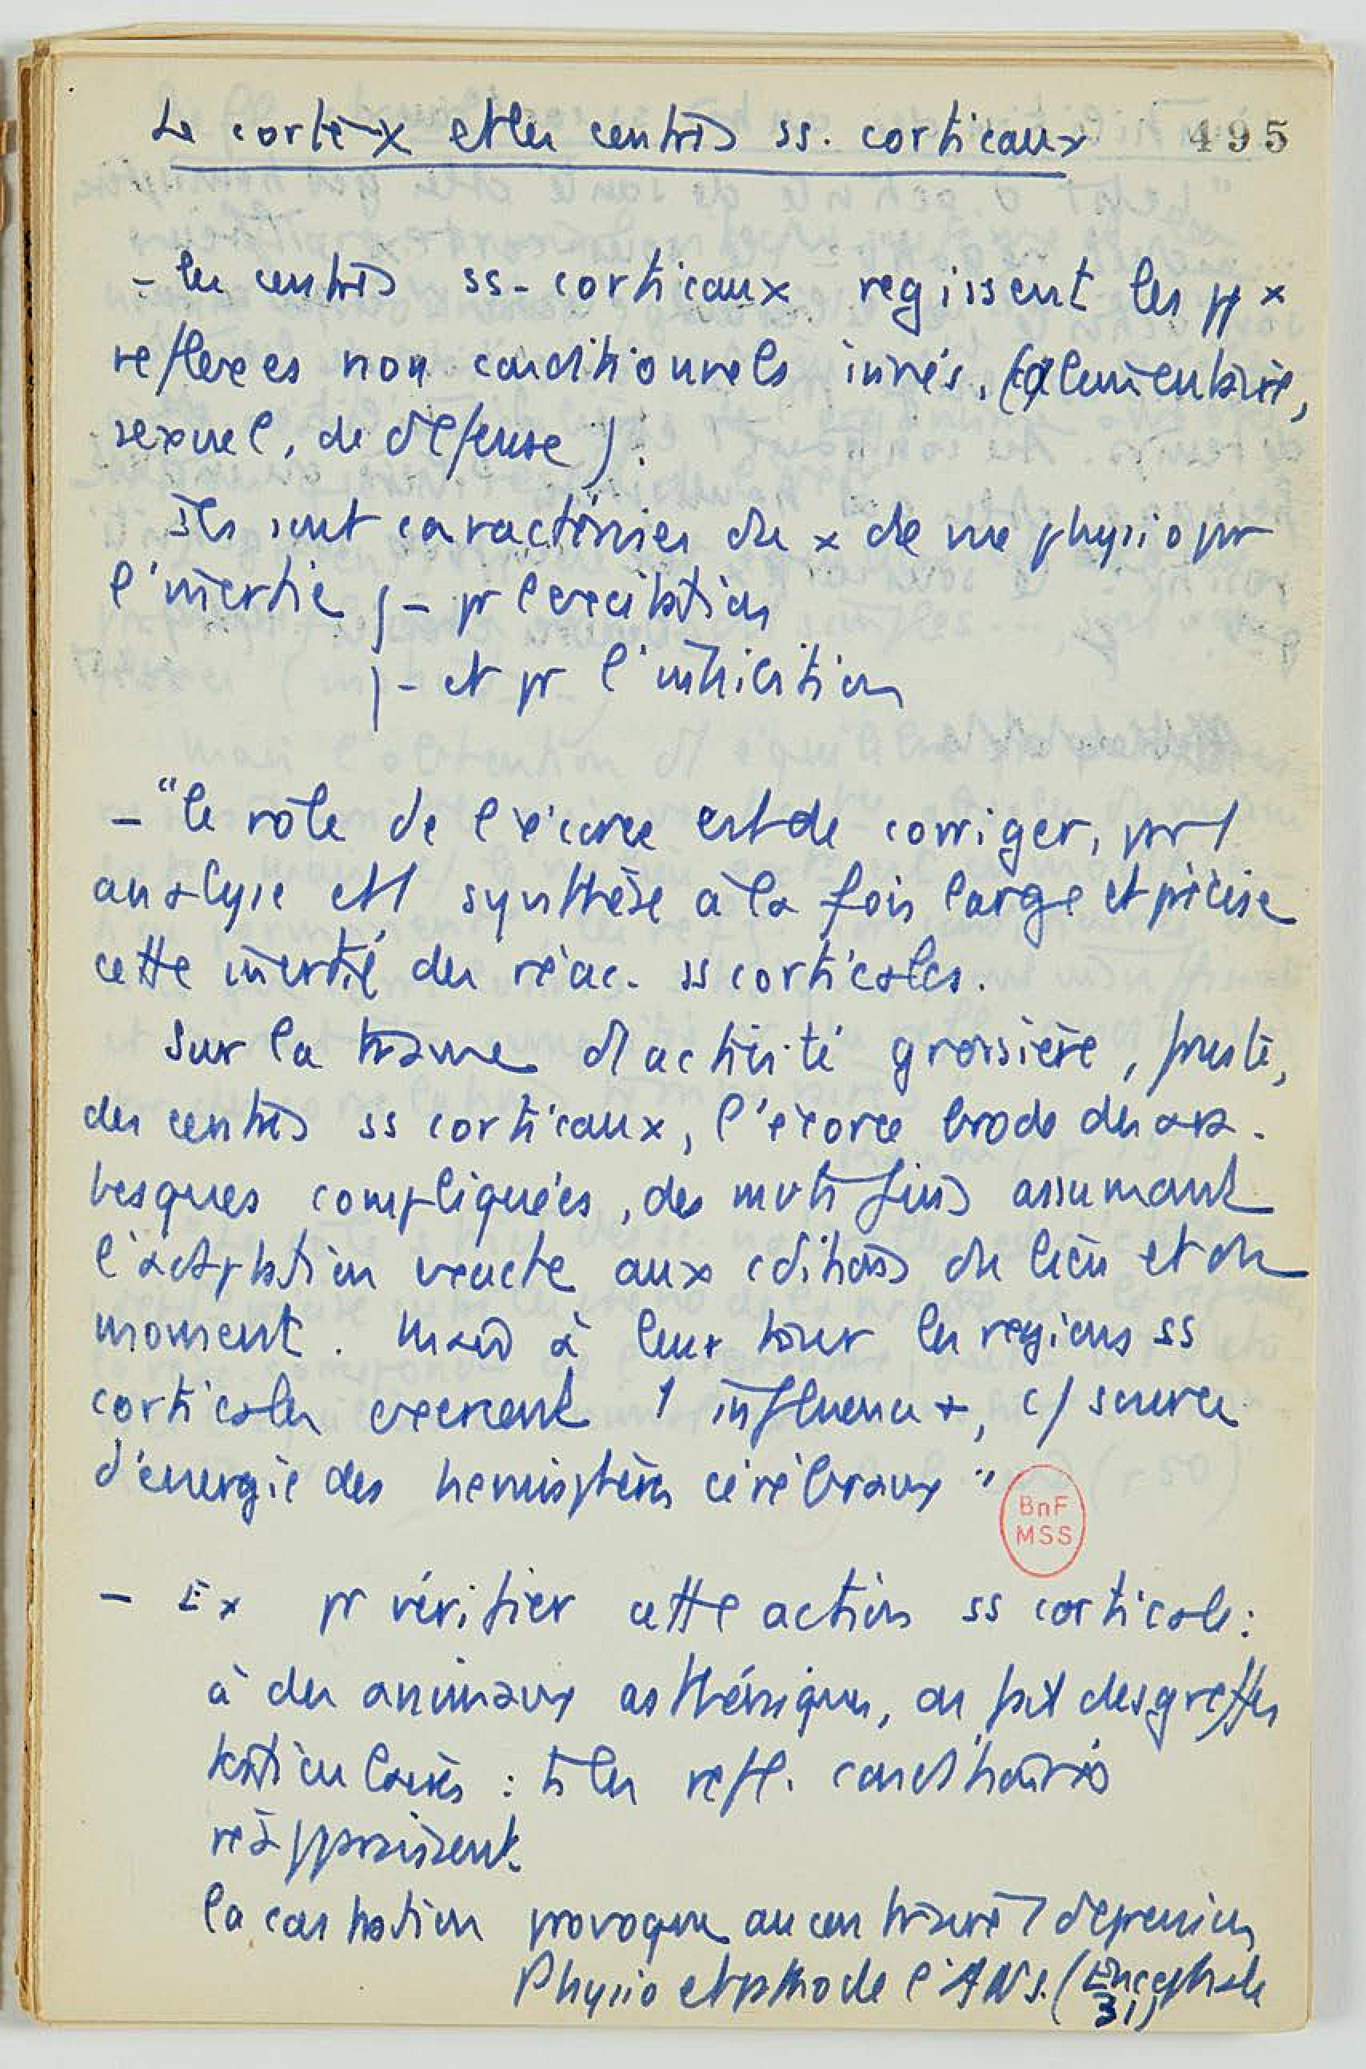 Le cortex et les centres ss. corticaux
495
- les centres ss-corticaux regissent les px
reflexes non conditionnels innés, (alimentaire,
sexuel, de défense).
Ils sont caractérisés du x de vue physio par
l'inertie - pr l'excitation
- et pr l'inhibition
- "le rôle de l'écorce est de corriger, par 1
analyse et 1 synthèse à la fois large et précise
cette inertie des réac. ss corticales.
Sur la trame d'activité grossière, fruste,
des centres ss corticaux, l'écorce brode des ara-
besques compliquées, des motifs fins assumant
l'adaptation exacte aux cditions du lieu et du
moment. Mais à leur tour les regions ss
corticales exercent 1 influence +, c/ source
d'energie des hemisphères cérébraux"
BnF
MSS
- Ex pr vérifier cette action ss corticale :
à des animaux asthéniques, on fait des greffes
testiculaires : ts les refl. conditionnés
réapparaissent.
la castration provoque au contraire 1 depression
Physio et patho de l'ANS. (Encephale
31)